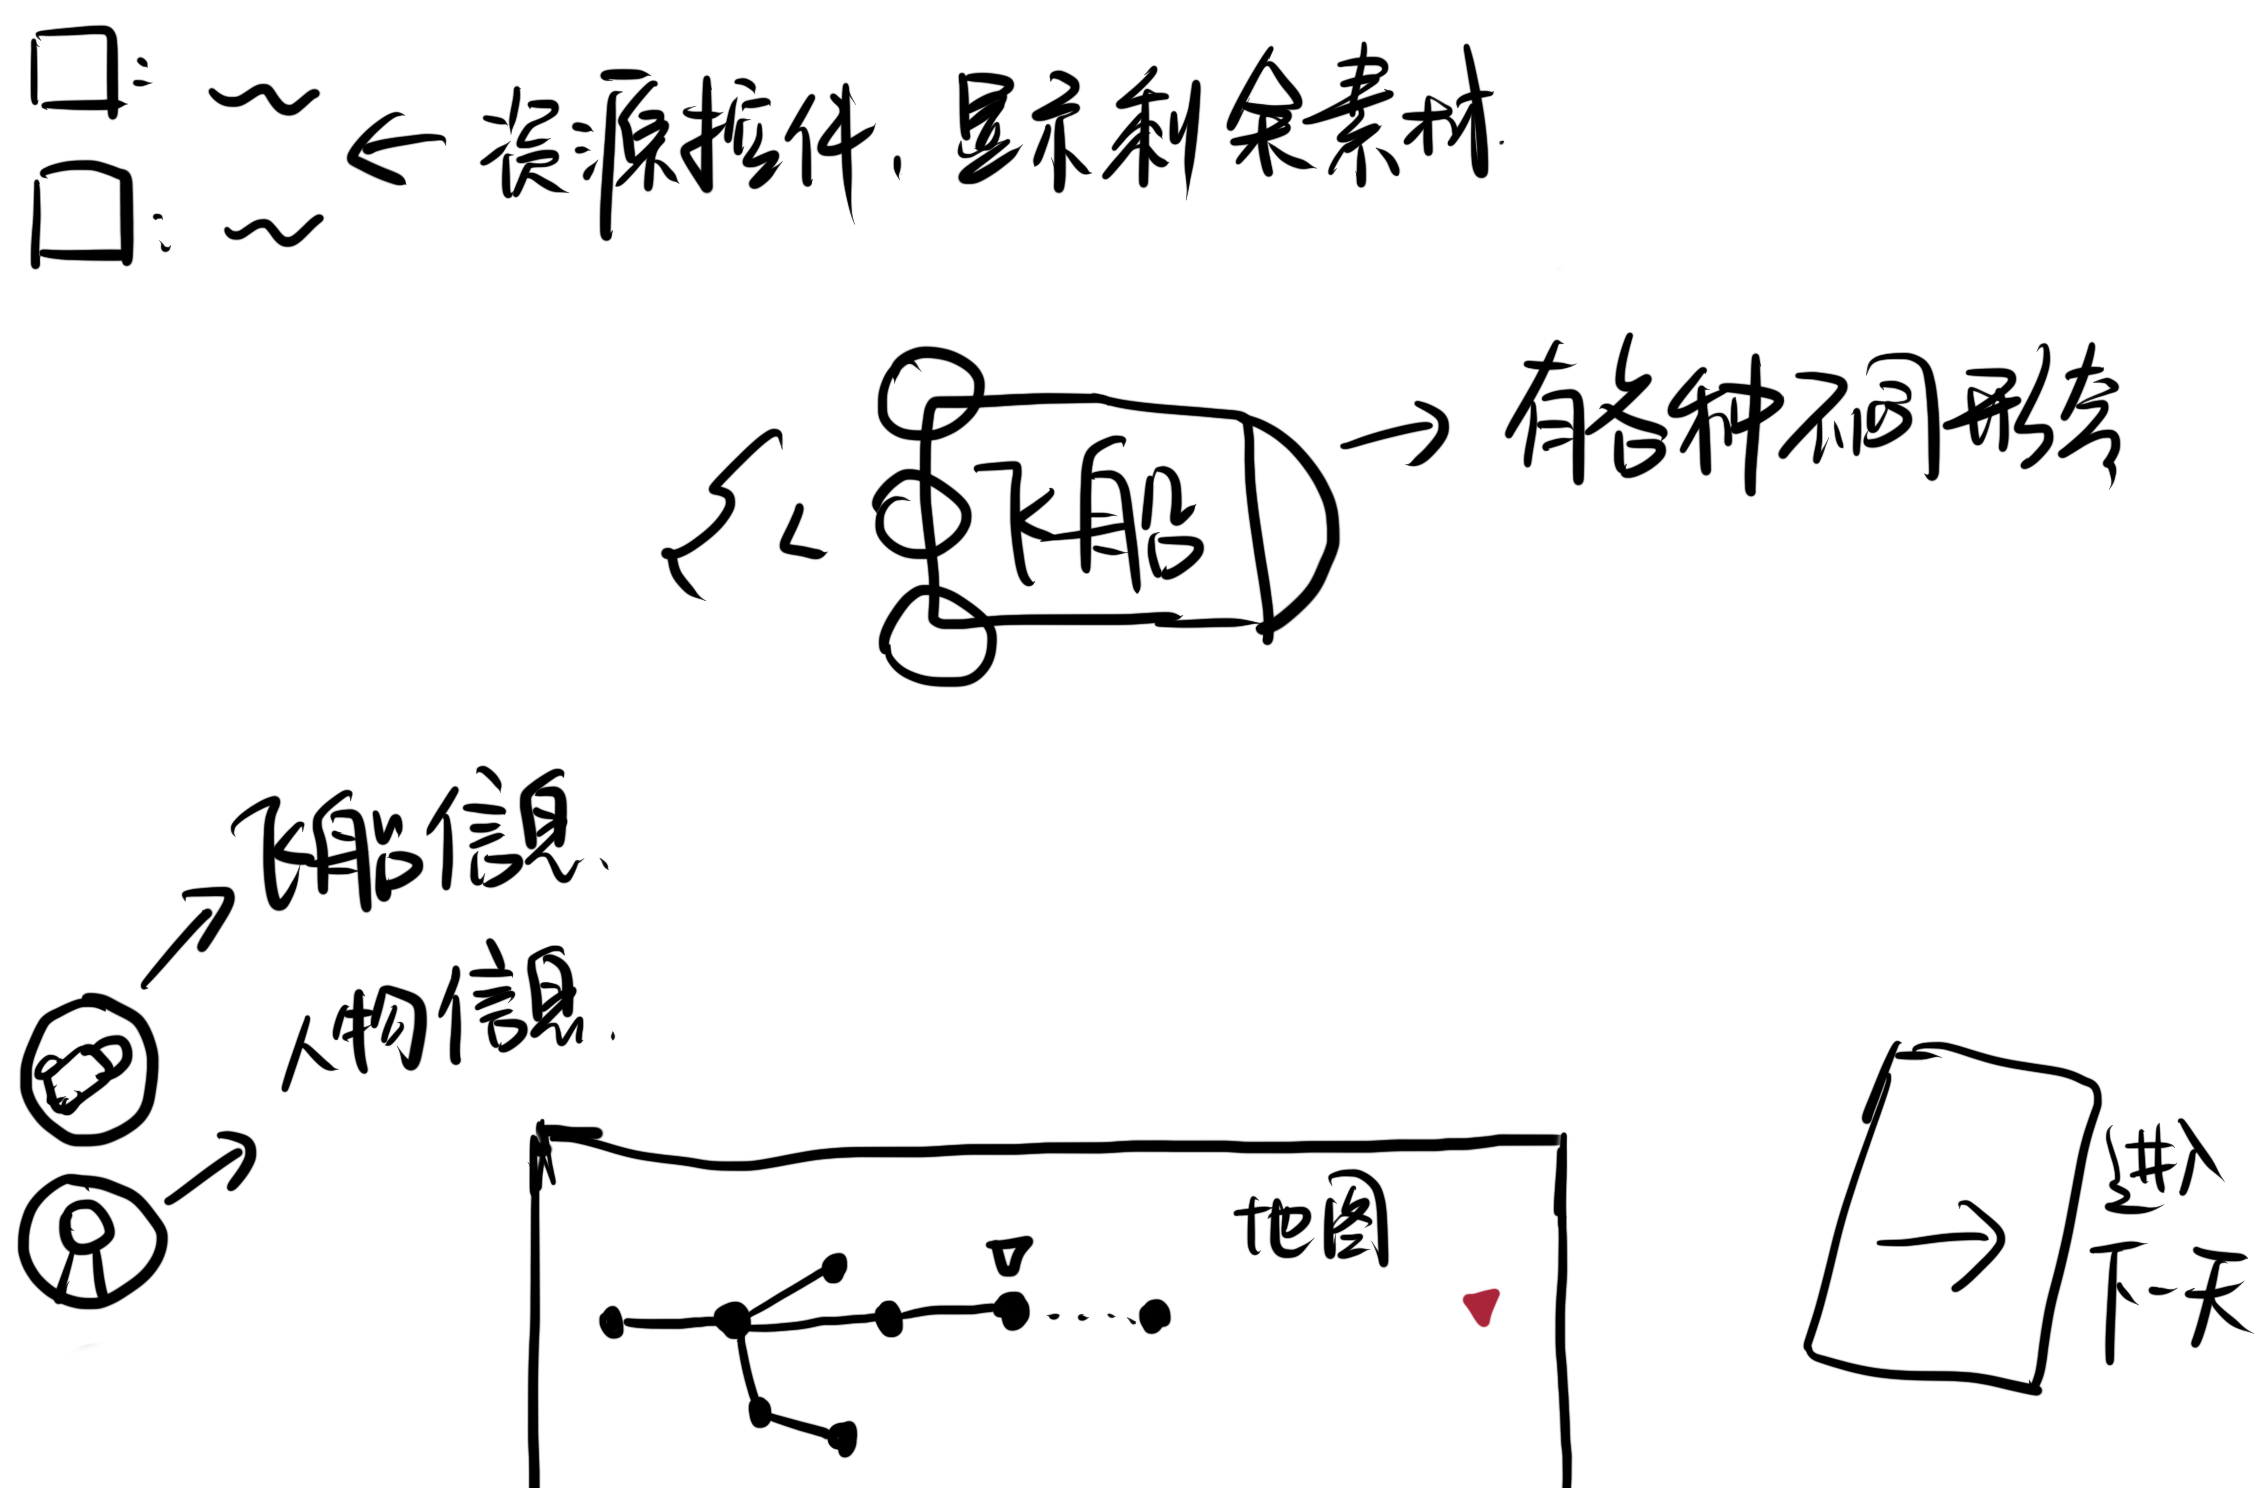 资源控件，显示剩余素材.
有各种不同形态
飞船
飞船信息.
人物信息.
地图
进入
下一天